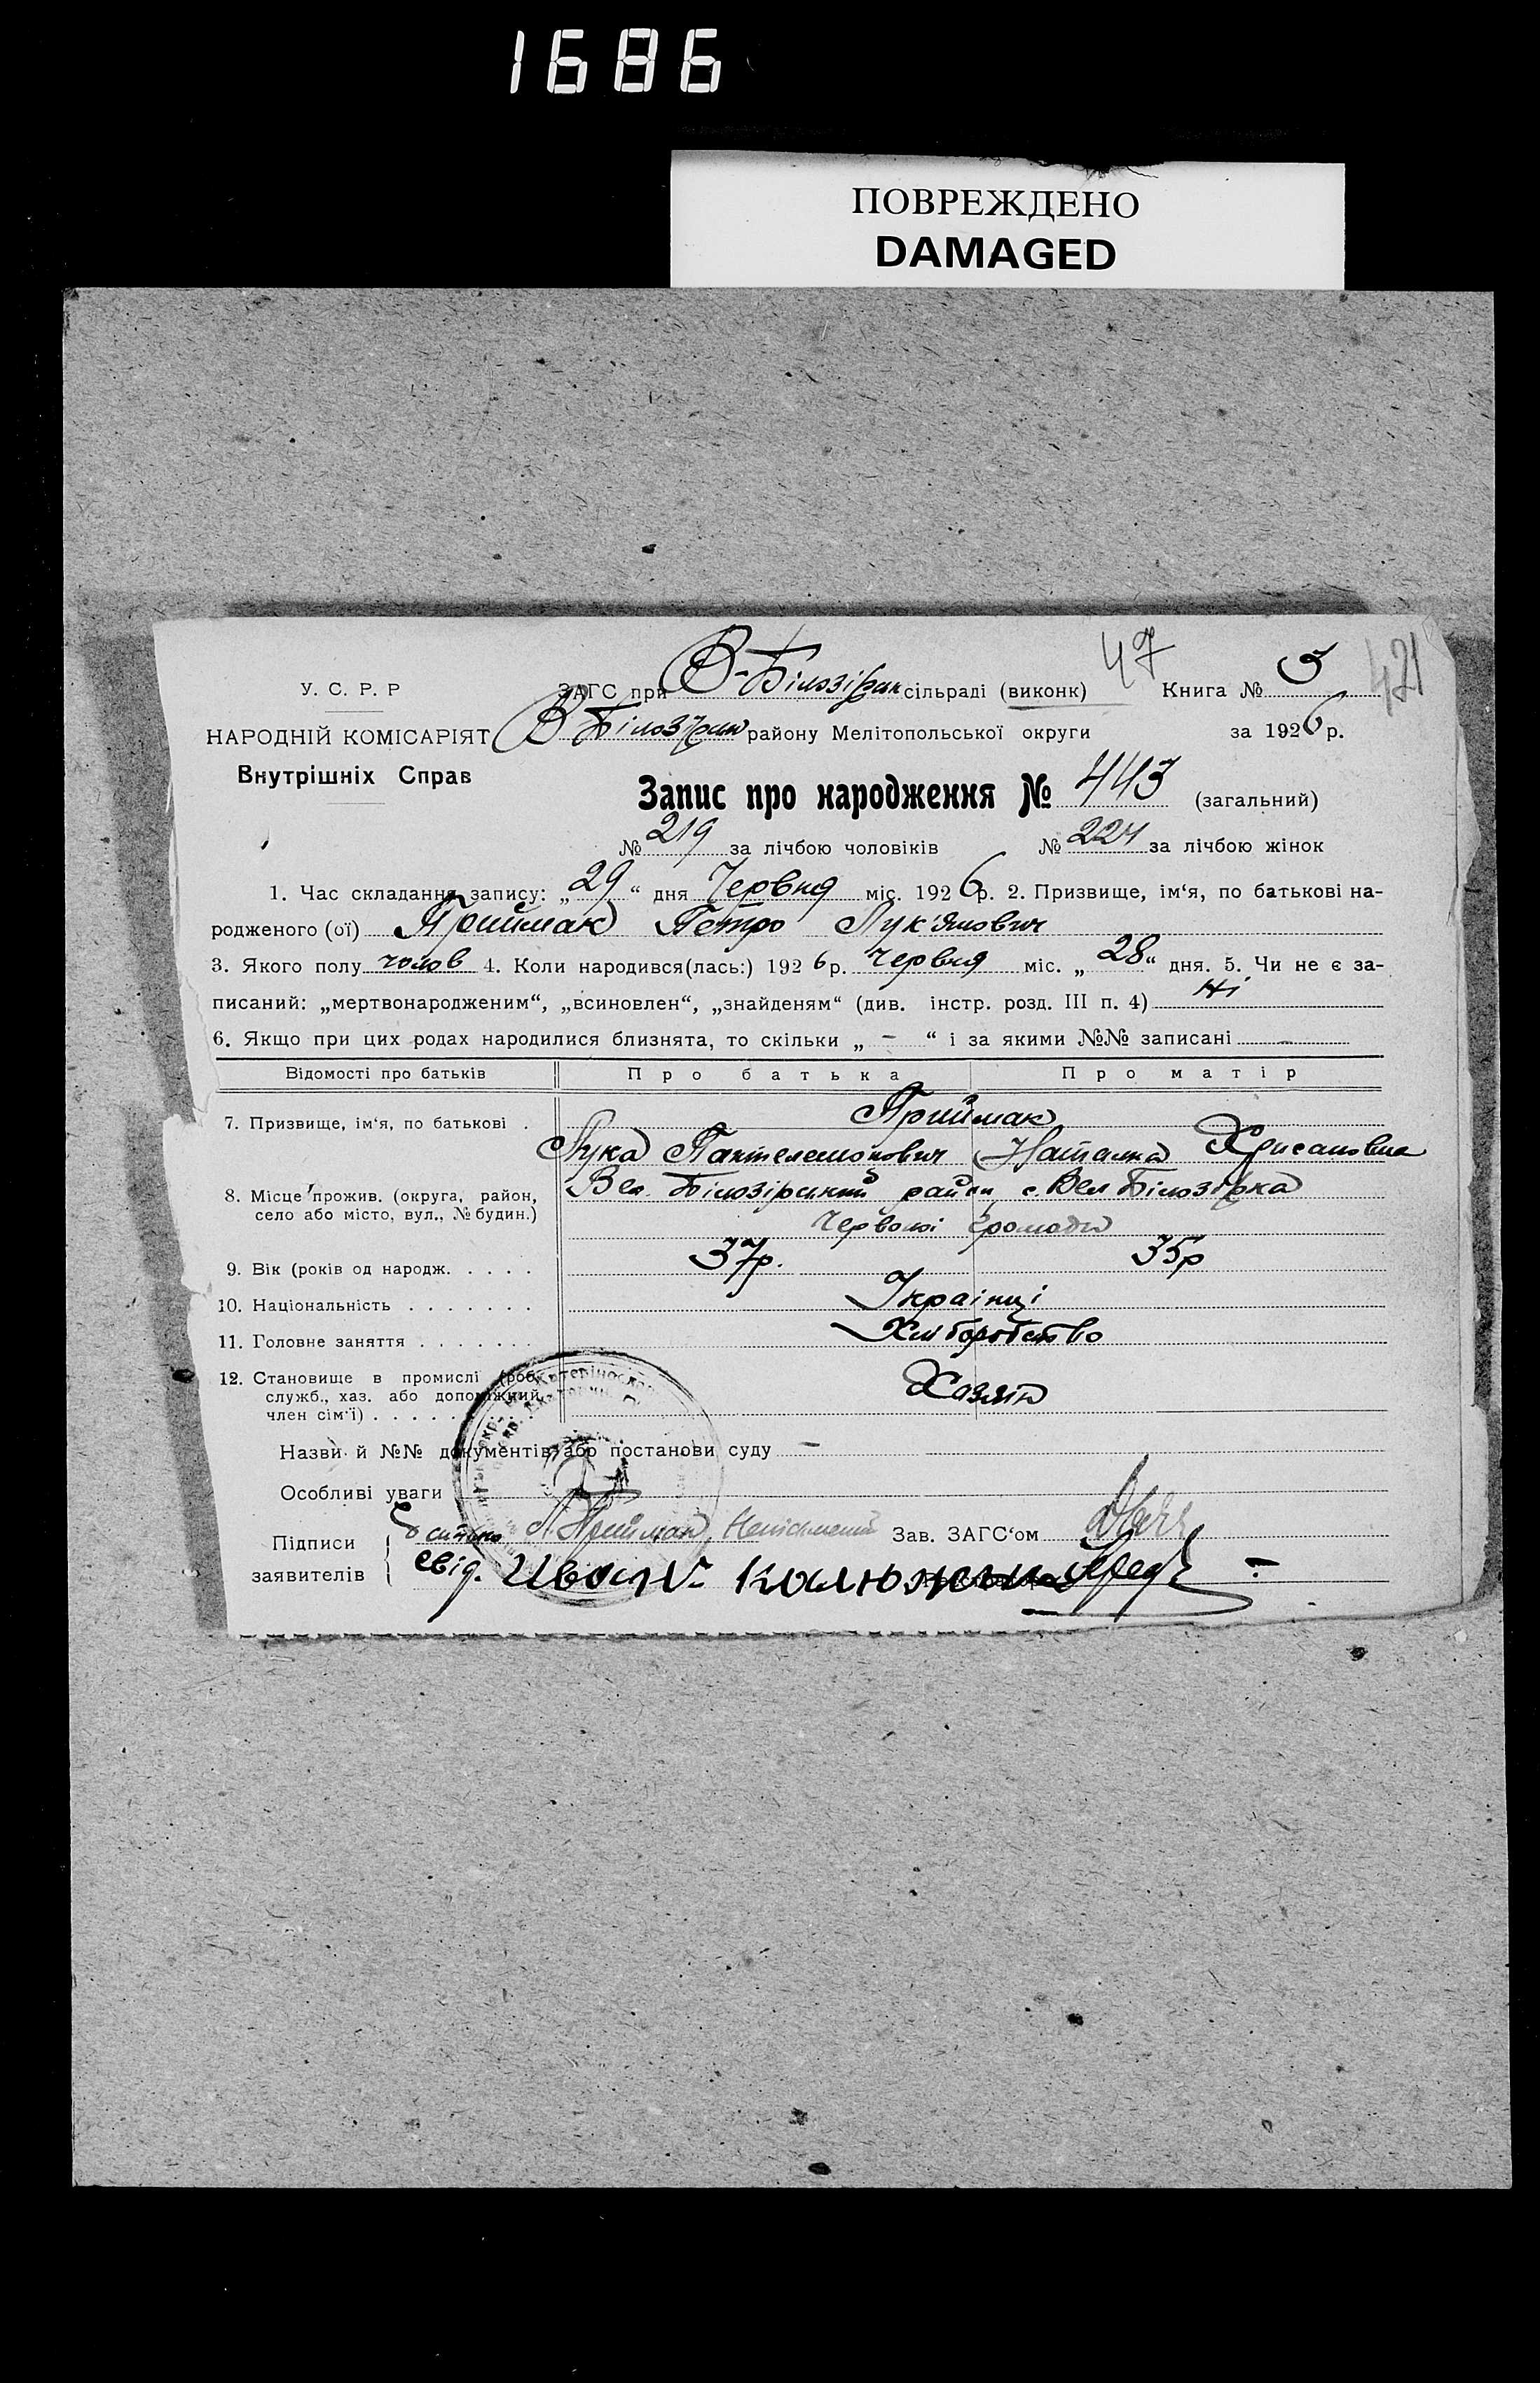 1686
ПОВРЕЖДЕНО
DAMAGED
47
421
У. С. Р. Р
ЗАГС при В-Білозірк сільраді (виконк)
Книга № 5
НАРОДНІЙ КОМІСАРІЯТ
В Білозірк району Мелітопольської округи
за 1926 р.
Внутрішніх Справ
Запис про народження № 443 (загальний)
№ 219 за лічбою чоловіків № 224 за лічбою жінок
1. Час складання запису: „29“ дня Червня міс. 1926 р. 2. Призвище, ім‘я, по батькові на-
родженого (ої) Приймак Петро Лук‘янович
3. Якого полу чолов 4. Коли народився(лась:) 1926 р. Червня міс. „28“ дня. 5. Чи не є за-
писаний: „мертвонародженим“, „всиновлен“, „знайденям“ (див. інстр. розд. III п. 4) Ні
6. Якщо при цих родах народилися близнята, то скільки „ - “ і за якими №№ записані -
Відомості про батьків Про батька Про матір
Приймак
7. Призвище, ім‘я, по батькові .
Лука Пантелемонович Наталка Хрисановна
8. Місце прожив. (округа, район,
село або місто, вул., № будин.)
Вел. Білозірський район с. Вел Білозірка
Червоної громади
9. Вік (років од народж. . . . . 37р. 35р
10. Національність . . . . . . . Українці
11. Головне заняття . . . . . . . Хліборобство
12. Становище в промислі (роб.
служб., хаз. або допоміжний
член сім‘ї) . . . . .
Хазяїн
Назви й №№ документів або постанови суду -
Особливі уваги
Підписи
заявителів
батько Л Приймак Неписьменний
Зав. ЗАГС‘ом
свід. Иван Калюжни